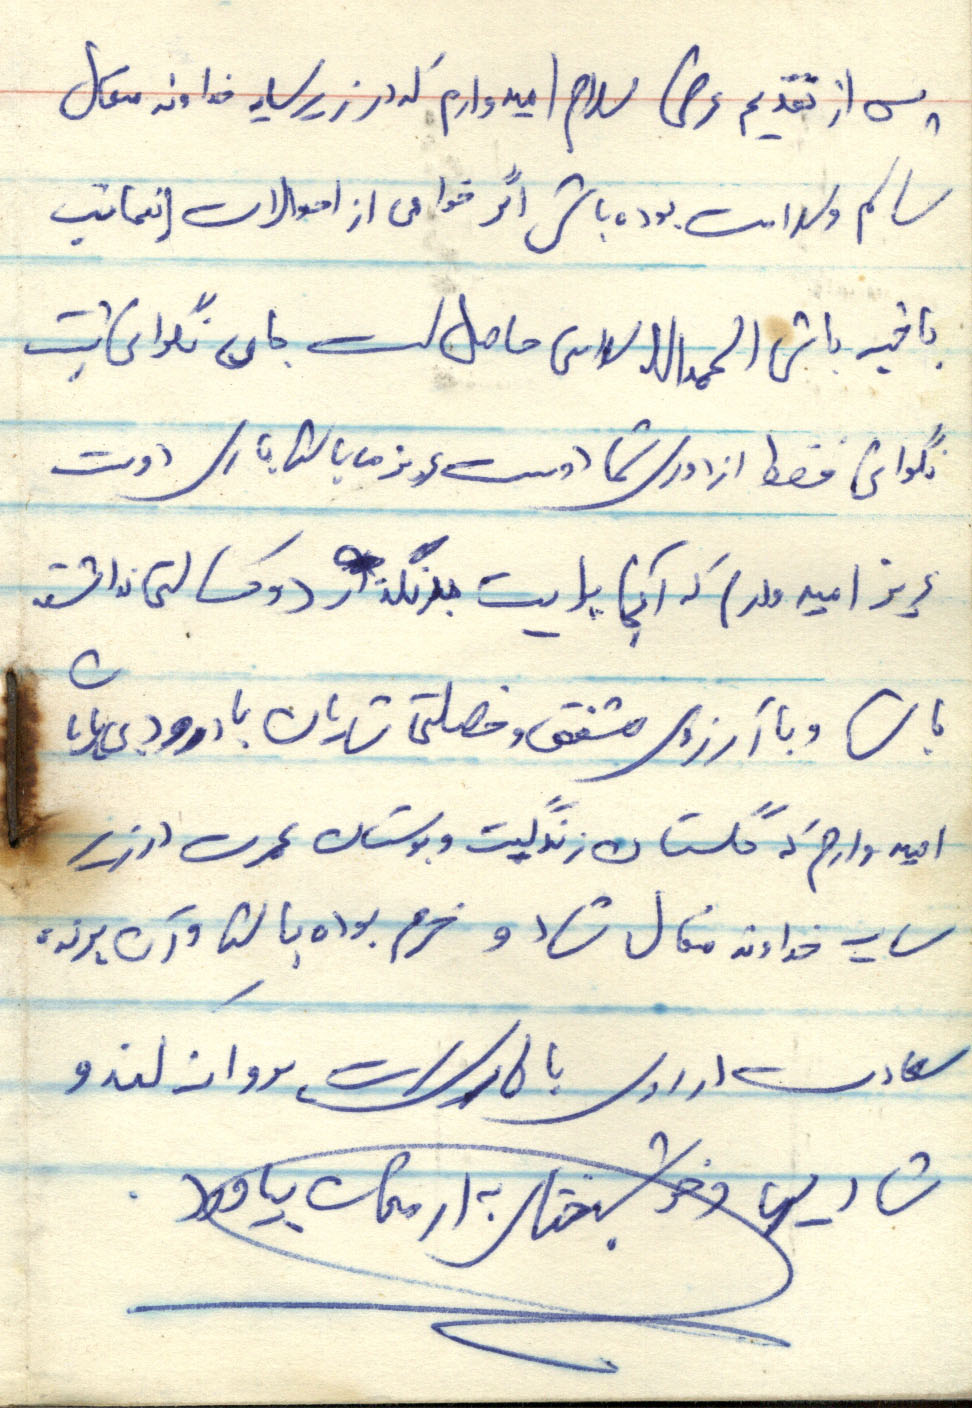 پس از تقدیم عرض سلام امیدوارم که در زیر سایه خداوند متعال
سالم و سلامت بوده باشی اگر خواهی از احوالات اینجانب
باخبر باشی الحمدالله سلامتی حاصل است جای نگرانی نیست
نگرانی فقط از دوری شما دوست عزیز ما باشد باری دوست
عزیز امیدوارم که آنجا بد نگذرد و کسالتی نداشته
باشی و با آرزوی مشفق و خصلتی شایان با درودی
امیدوارم که گلستان زندگیت و بوستان عمرت در زیر
سایه خداوند متعال شاد و خرم بوده باشد و آن پرنده
سعادت از روی پرواز کند و
شادیها و خوشبختی به ارمغان بیاورد .